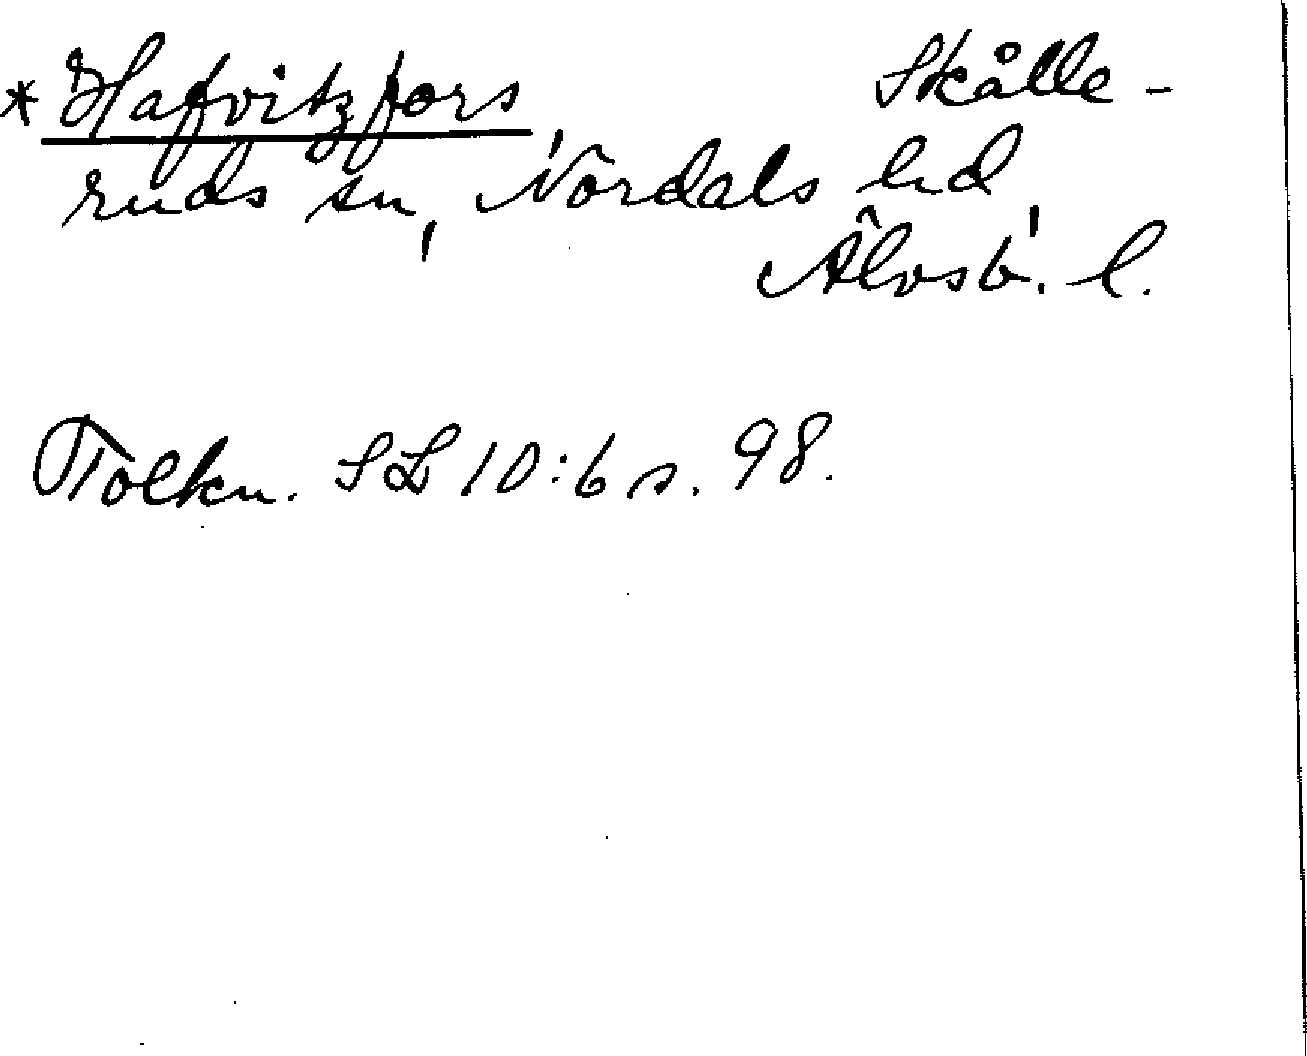 * Hafvitzfors Skålle-
ruds sn, Nordals hd,
Älvsb. l.
Tolkn. SL 10:6 s. 98.